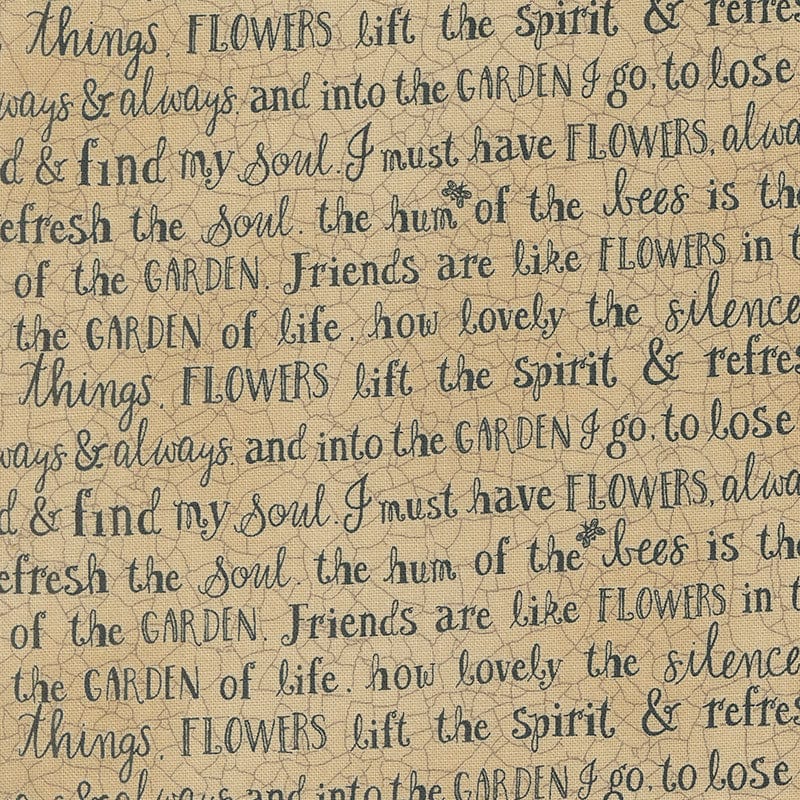 things. FLOWERS lift the spirit & refres
ways & always. and into the GARDEN I go, to lose
d & find my soul. I must have FLOWERS, alwa
efresh the soul. the hum of the bees is the
of the GARDEN. Friends are like FLOWERS in t
the GARDEN of life. how lovely the silence
things. FLOWERS lift the spirit & refres
ways & always. and into the GARDEN I go, to lose
d & find my soul. I must have FLOWERS, alwa
efresh the soul. the hum of the bees is the
of the GARDEN. Friends are like FLOWERS in t
the GARDEN of life. how lovely the silence
things. FLOWERS lift the spirit & refres
always. and into the GARDEN I go, to lose